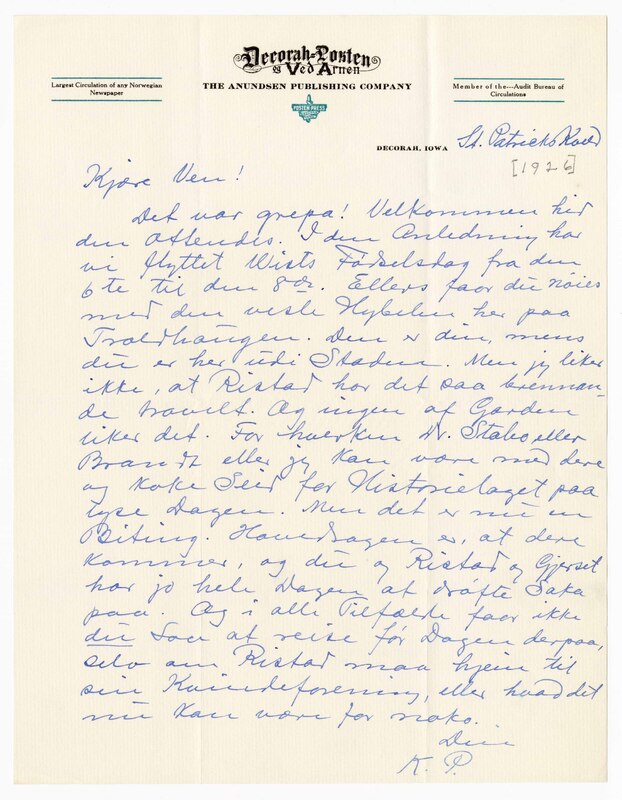 Decorah-Posten
og Ved Arnen
THE ANUNDSEN PUBLISHING COMPANY
Largest Circulation of any Norwegian
Newspaper
Member of the---Audit Bureau of
Circulations
POSTEN PRESS
DECORAH, IOWA St. Patricks Kveld
[1926]
Kjære Ven!
Det var grepa! Velkommen hid
den Ottendes. I den Anledning har
vi flyttet Wists Fødselsdag fra den
6te til den 8de. Ellers faar du nøies
med den vesle Hybelen her paa
Troldhaugen. Den er din, mens
du er her udi Staden. Men jeg liker
ikke, at Ristad har det saa brennan-
de travelt. Og ingen af Garden
liker det. For hverken Dr. Stabo, eller
Brandt eller jeg kan være med dere
og koke Seid for Historielaget paa
lyse Dagen. Men det er nu en
Biting. Hovedsagen er, at dere
kommer, og du og Ristad og Gjerset
har jo hele Dagen at drøfte Saka
paa. Og i alle Tilfælde faar ikke
du Lov at reise før Dagen derpaa,
selv om Ristad maa hjem til
sin Kvindeforening, eller hvad det
nu kan være for noko.
Din
K. P.